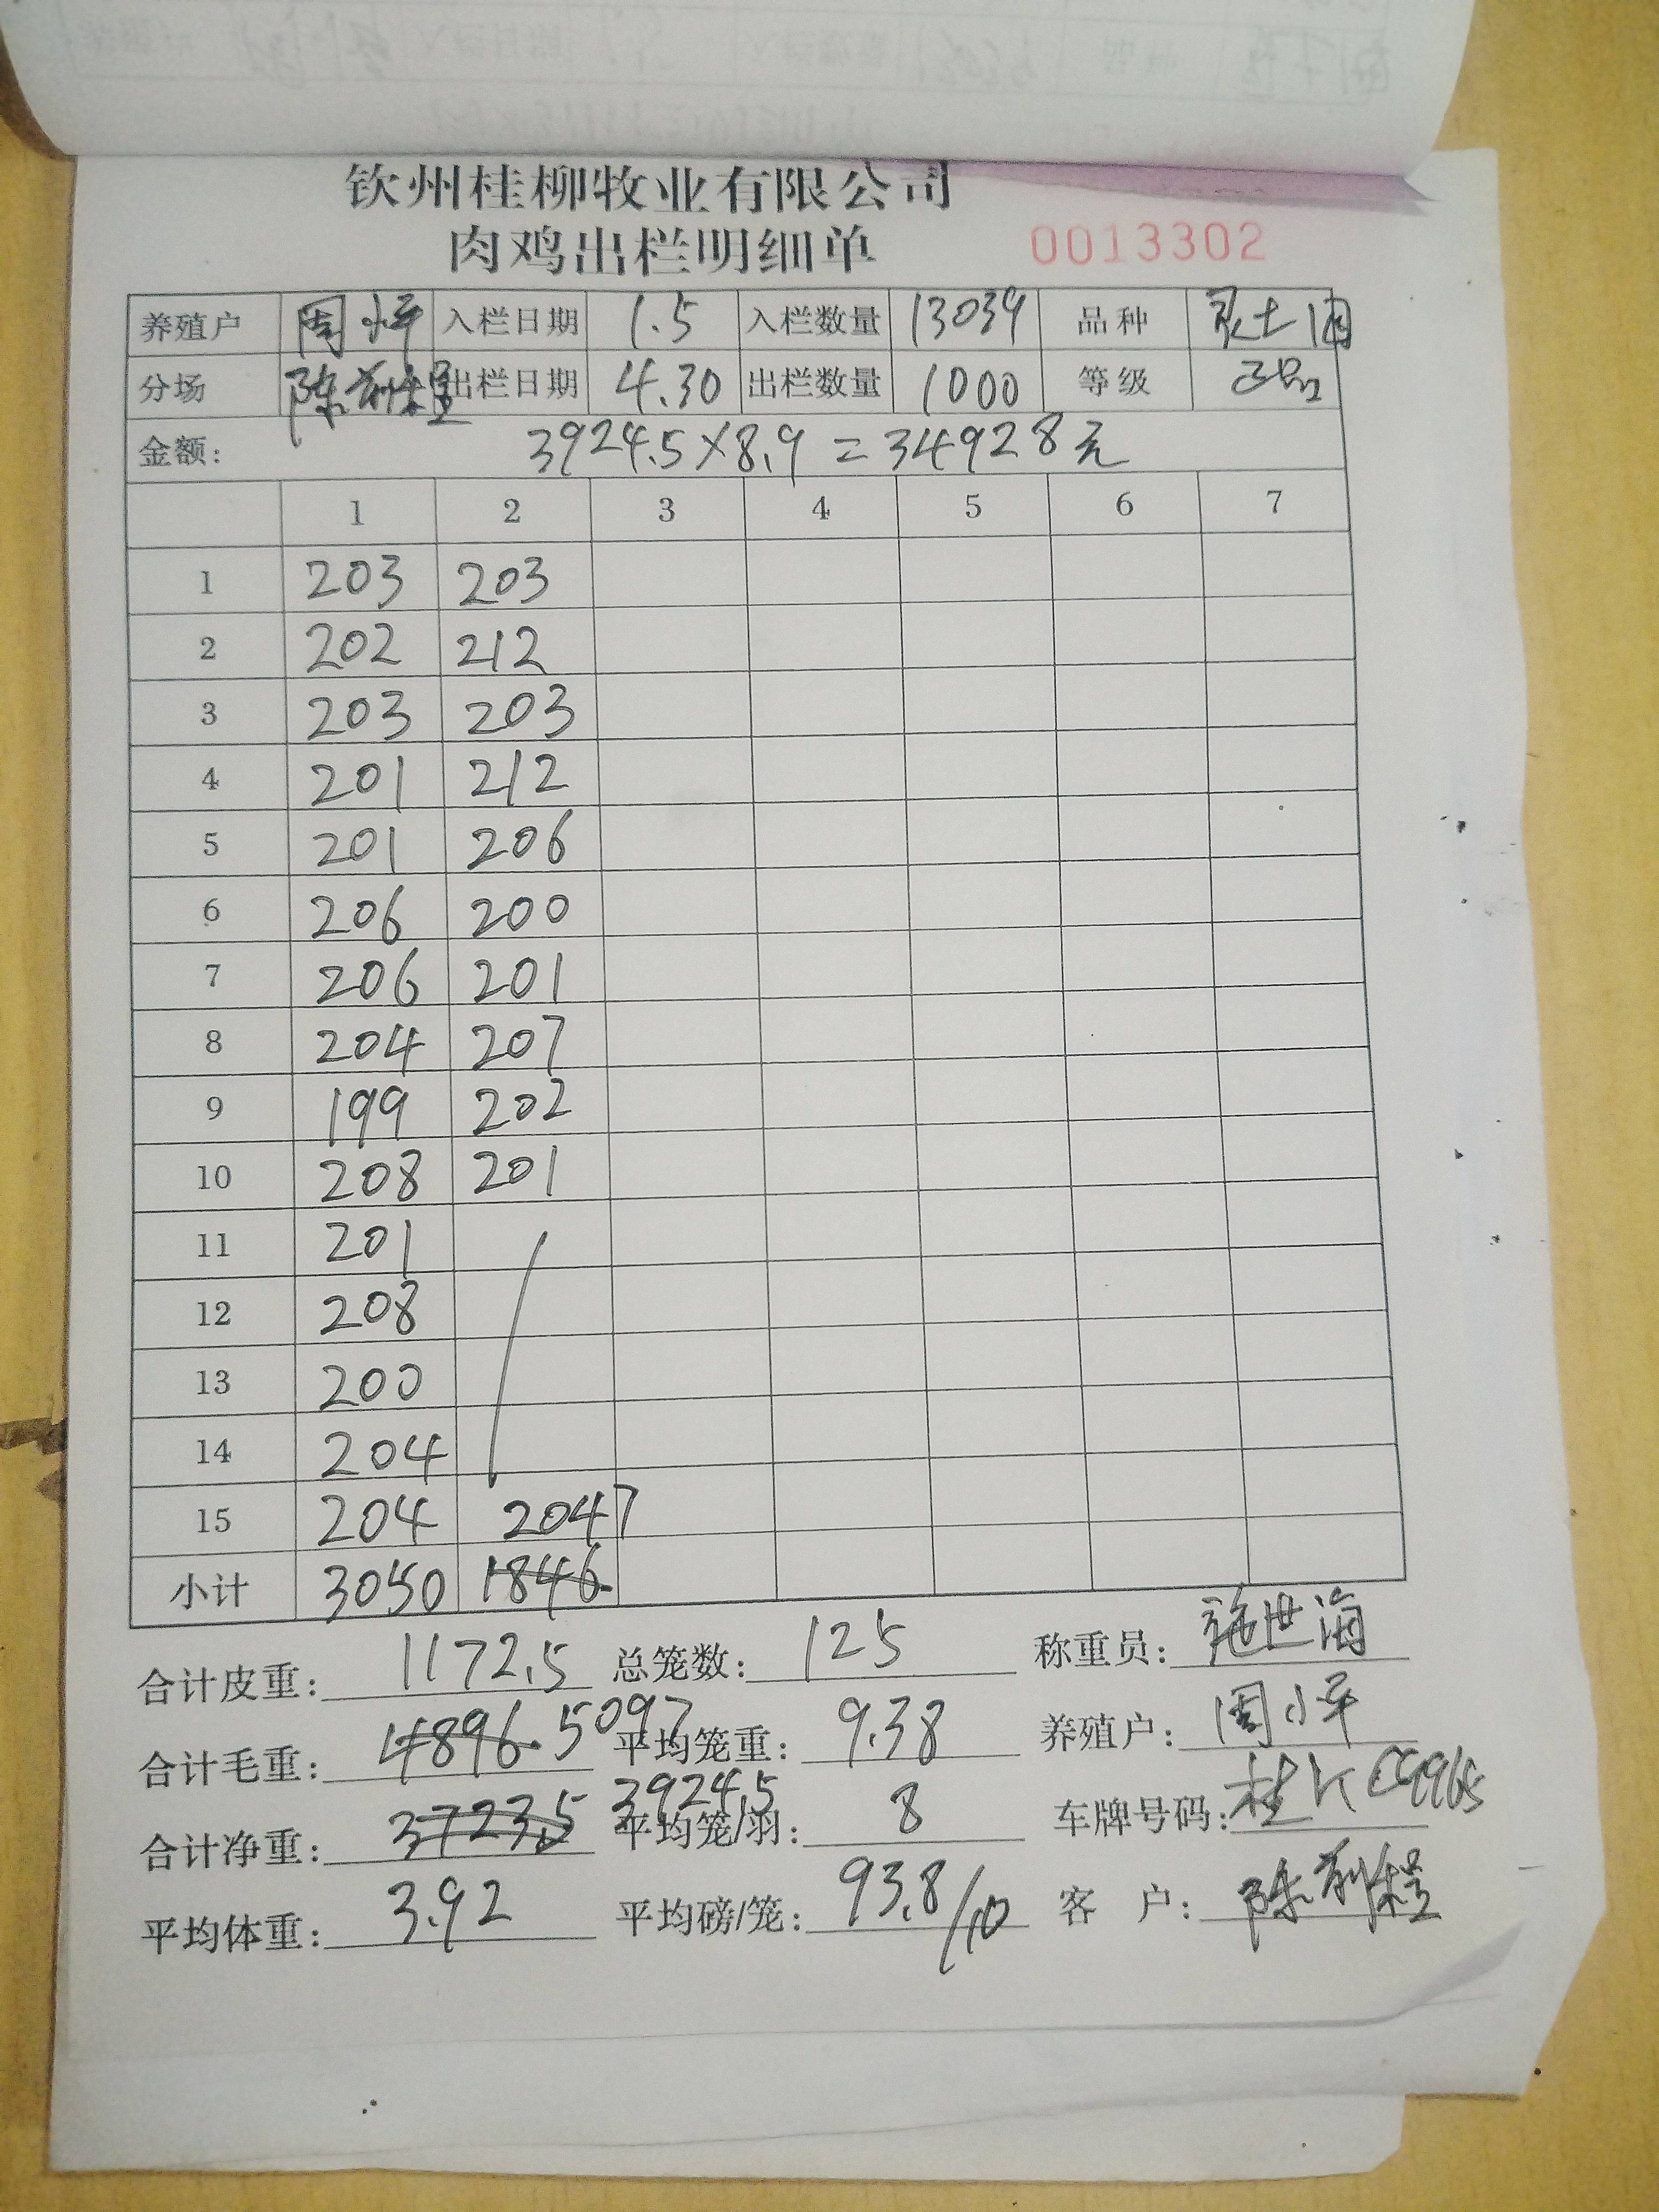 钦州桂柳牧业有限公司
肉鸡出栏明细单 0013302
养殖户 周小平 入栏日期 1.5 入栏数量 13039 品种 灵土
分场 陈前程 出栏日期 4.30 出栏数量 1000 等级 正品
金额: 3924.5×8.9=34928元
1 2 3 4 5 6 7
1 203 203
2 202 212
3 203 203
4 201 212
5 201 206
6 206 200
7 206 201
8 204 207
9 199 202
10 208 201
11 201
12 208
13 200
14 204
15 204 2047
小计 3050 1846
合计皮重: 1172.5 总笼数: 125 称重员: 施世海
合计毛重: 4896. 5097 平均笼重: 9.38 养殖户: 周小平
合计净重: 3723.5 3924.5 平均笼/羽: 8 车牌号码: 桂
平均体重: 3.92 平均磅/笼: 93.8/10 客 户: 陈前程